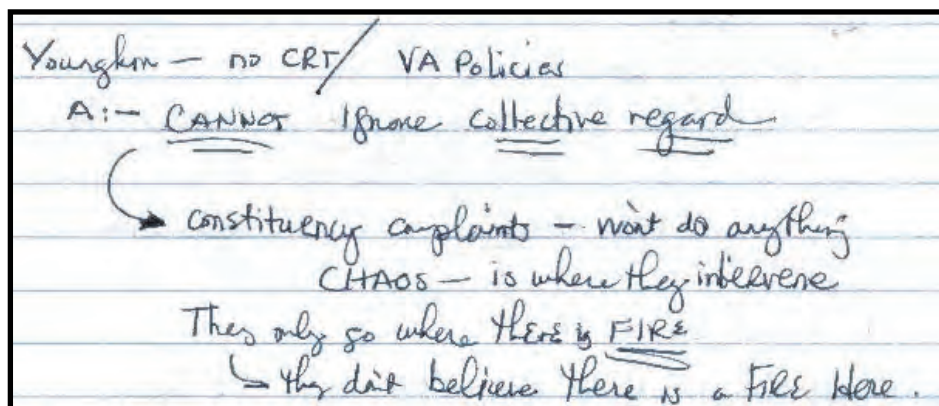 Youngkin — no CRT / VA Policies
A:— CANNOT Ignore collective regard
constituency complaints — won't do anything
CHAOS — is where they intervene
They only go where there is FIRE
they don't believe there is a FIRE Here.